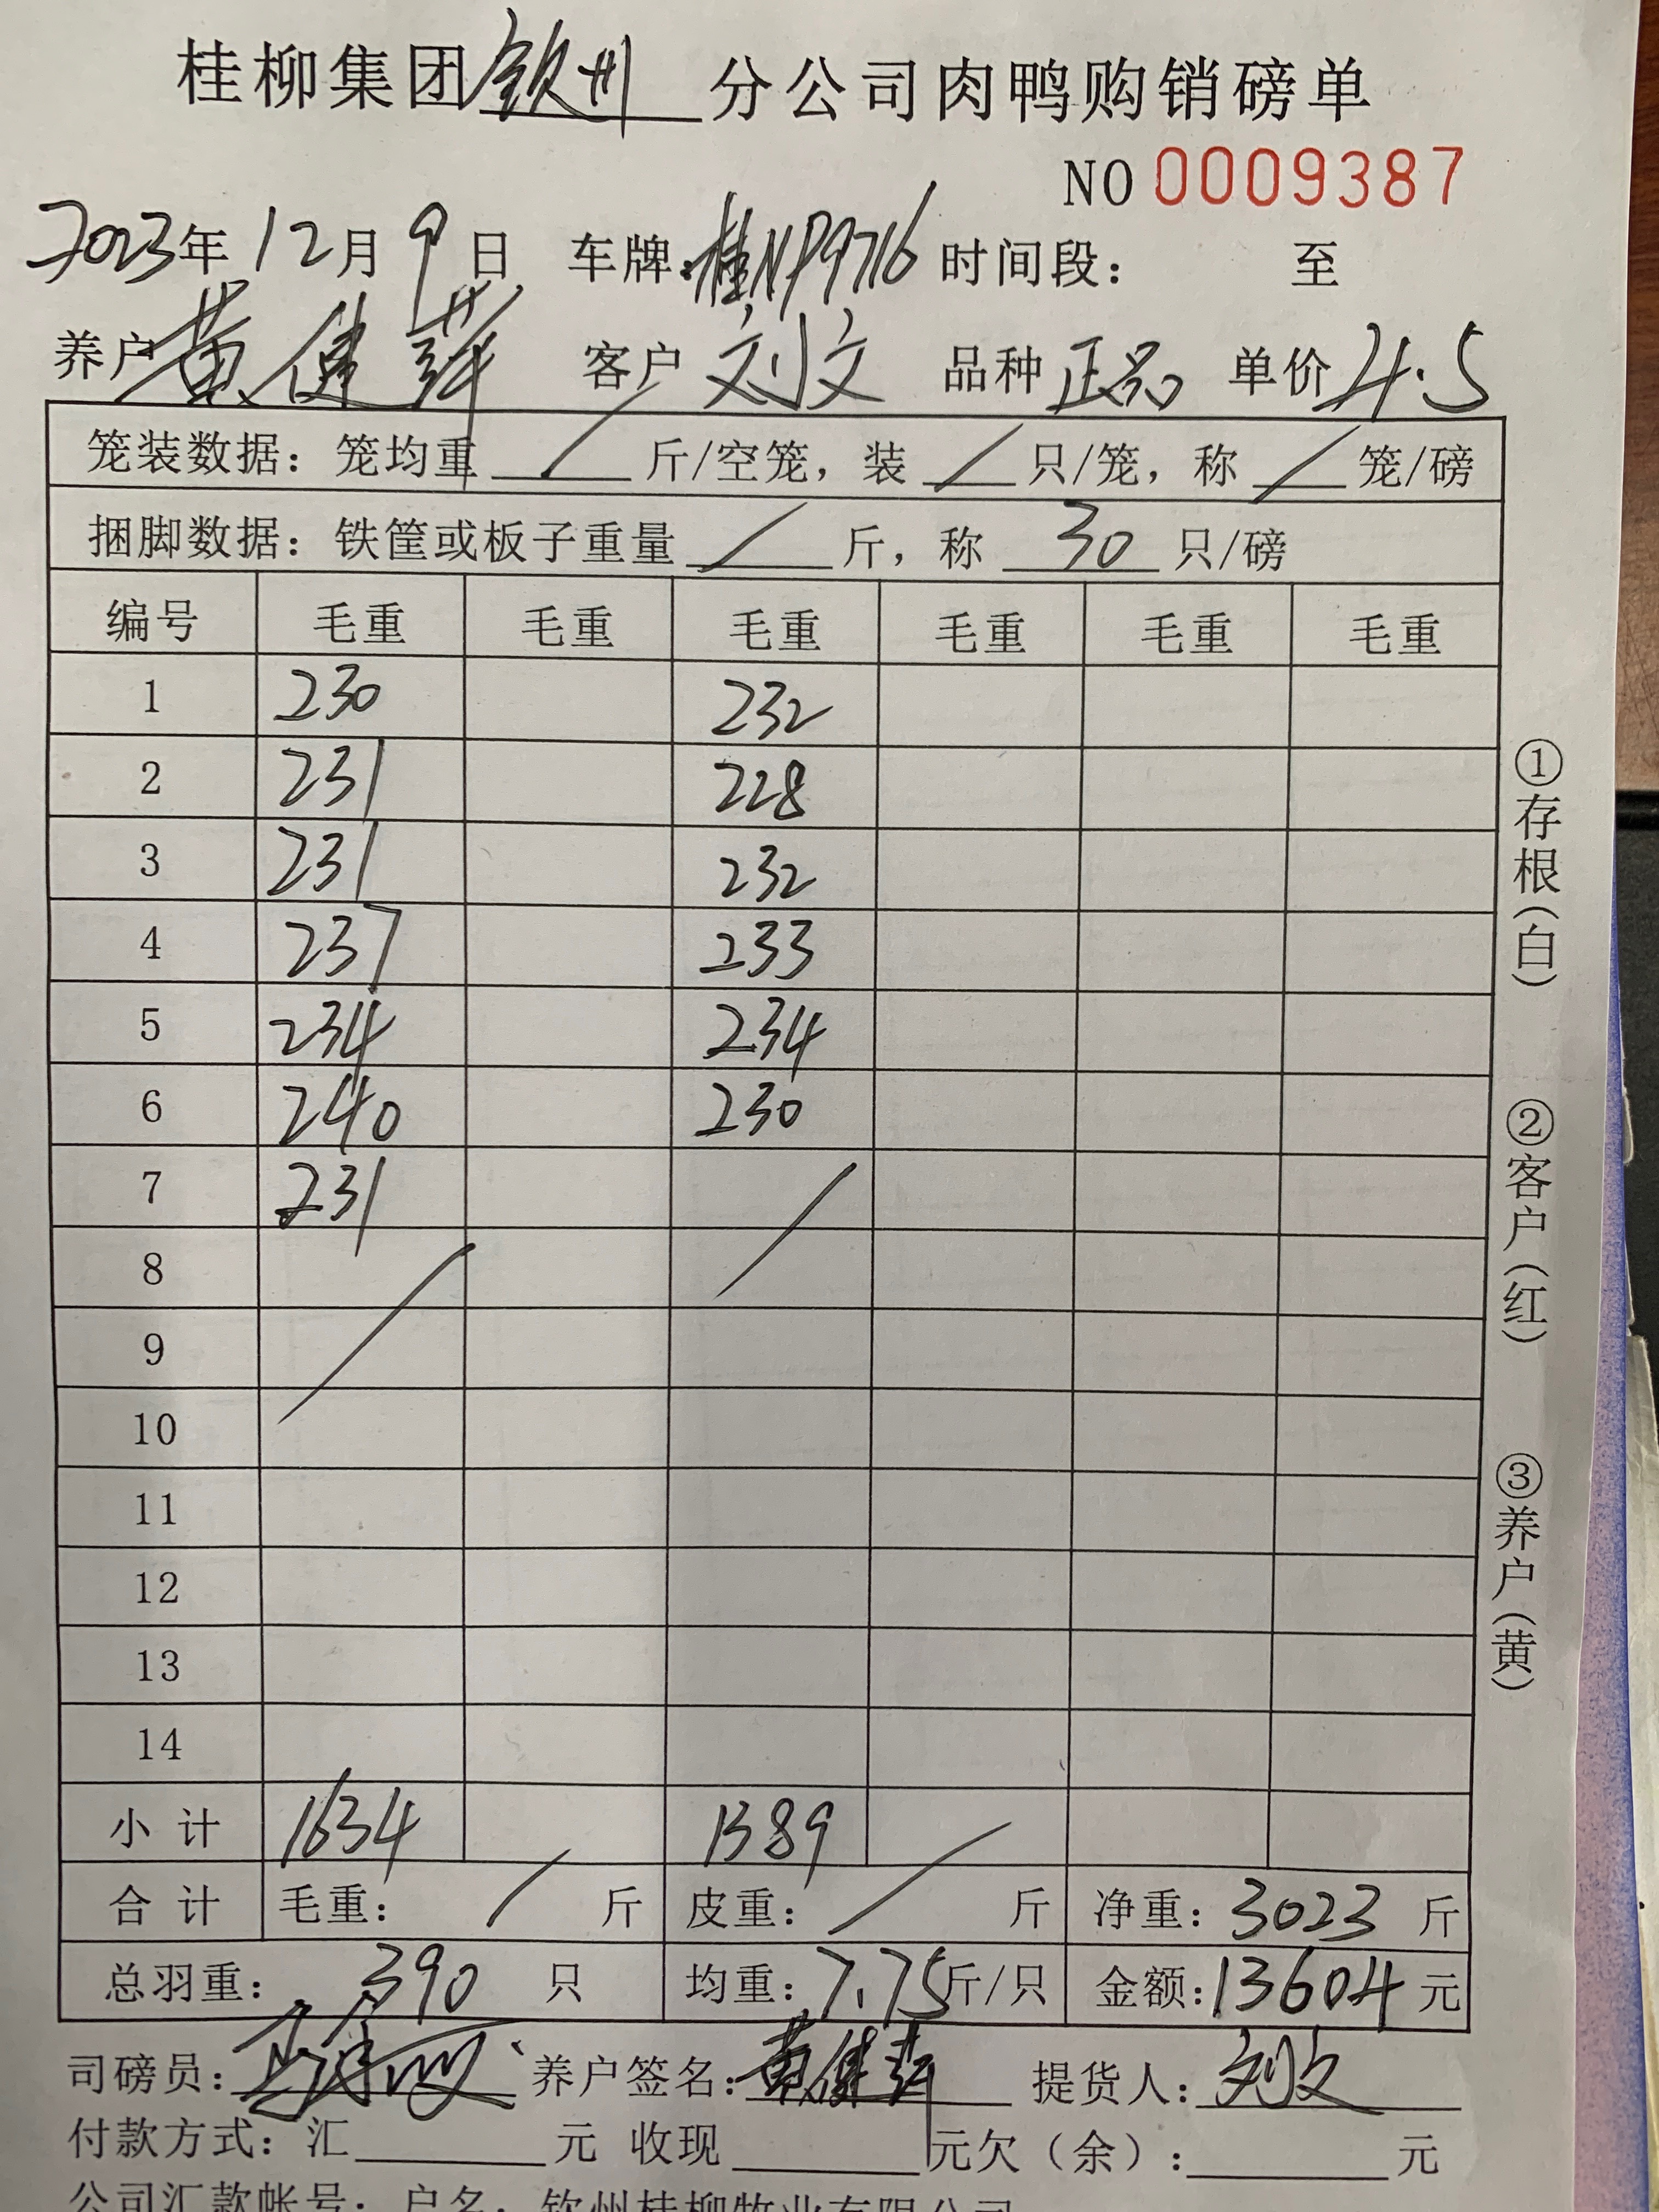 桂柳集团钦州分公司肉鸭购销磅单
NO 0009387
2023年12月9日 车牌:桂NP9716 时间段: 至
养户 黄健萍 客户 刘文 品种 正品 单价 4.5
笼装数据:笼均重 / 斤/空笼,装 / 只/笼,称 / 笼/磅
捆脚数据:铁筐或板子重量 / 斤,称 30 只/磅
编号 毛重 毛重 毛重 毛重 毛重 毛重
1 230 232
2 231 228
3 231 232
4 237 233
5 234 234
6 240 230
7 231 /
8 /
9
10
11
12
13
14
小计 1634 1389
合计 毛重: / 斤 皮重: / 斤 净重:3023 斤
总羽重: 390 只 均重:7.75斤/只 金额:13604元
司磅员: 养户签名:黄健萍 提货人:刘文
付款方式:汇 元 收现 元欠(余): 元
公司汇款帐号:户名:钦州桂柳牧业有限公司
①存根(白)
②客户(红)
③养户(黄)